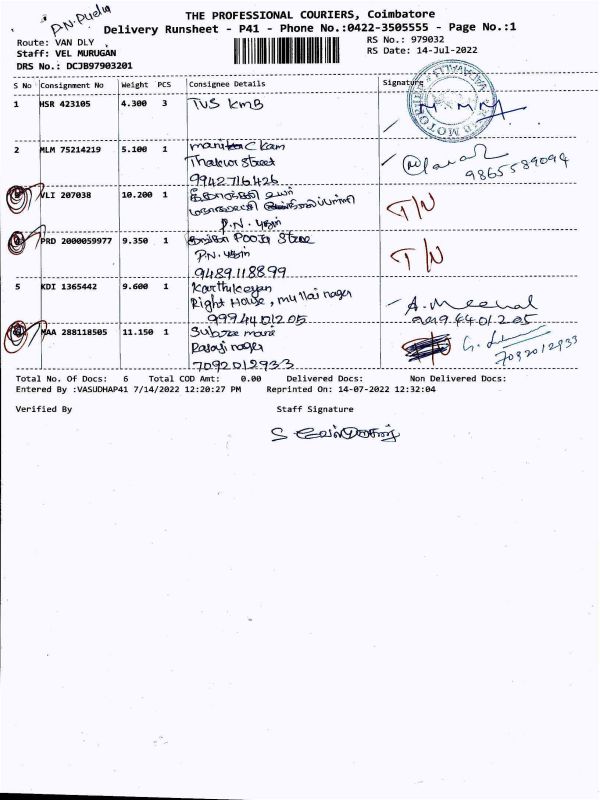 P.N. Pudur
THE PROFESSIONAL COURIERS, Coimbatore
Delivery Runsheet - P41 - Phone No.:0422-3505555 - Page No.:1
Route: VAN DLY
RS No.: 979032
Staff: VEL MURUGAN
RS Date: 14-Jul-2022
DRS No.: DCJB97903201
S No Consignment No Weight PCS Consignee Details Signature
1 HSR 423105 4.300 3 TVS KMB
2 MLM 75214219 5.100 1
Thakur Street
9942716426 9865589094
VLI 207038 10.200 1
T/N
P.N. புதூர்
PRD 2000059977 9.350 1 Pooja Store
P.N. புதூர் T/N
9489118899
5 KDI 1365442 9.600 1 Karthikeyan
Right House, mullai nagar A. Meenal
9994401205
MAA 288118505 11.150 1
Rajaji nager
7092012933 7092012933
Total No. Of Docs: 6 Total COD Amt: 0.00 Delivered Docs: Non Delivered Docs:
Entered By :VASUDHAP41 7/14/2022 12:20:27 PM Reprinted On: 14-07-2022 12:32:04
Verified By Staff Signature